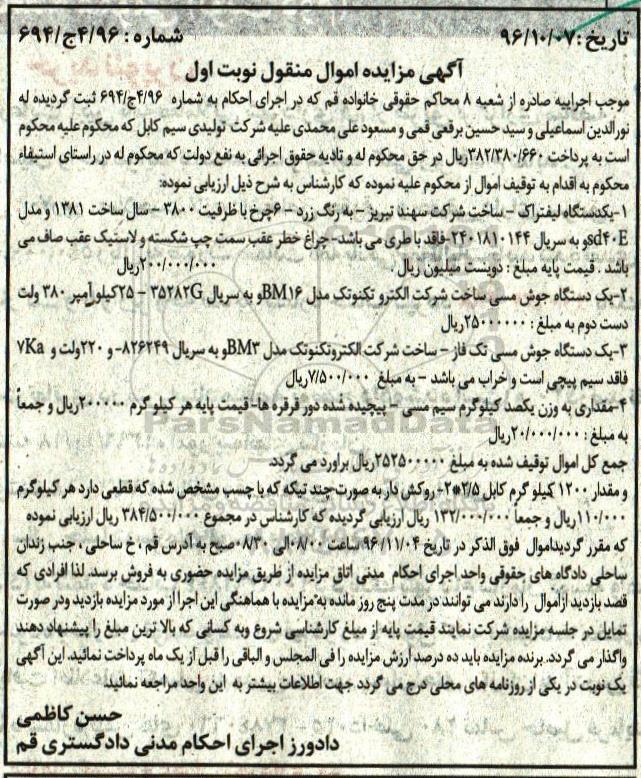 تاریخ :۹۶/۱۰/۰۷
شماره : ۴/۹۶ج/۶۹۴
آگهی مزایده اموال منقول نوبت اول
موجب اجراییه صادره از شعبه ۸ محاکم حقوقی خانواده قم که در اجرای احکام به شماره ۴/۹۶ج/۶۹۴ ثبت گردیده له
نورالدین اسماعیلی و سید حسین برقعی قمی و مسعود علی محمدی علیه شرکت تولیدی سیم کابل که محکوم علیه محکوم
است به پرداخت ۳۸۲/۳۸۰/۶۶۰ریال در حق محکوم له و تادیه حقوق اجرائی به نفع دولت که محکوم له در راستای استیفاء
محکوم به اقدام به توقیف اموال از محکوم علیه نموده که کارشناس به شرح ذیل ارزیابی نموده:
۱-یکدستگاه لیفتراک - ساخت شرکت سهند تبریز - به رنگ زرد - ۶چرخ با ظرفیت ۳۸۰۰ - سال ساخت ۱۳۸۱ و مدل
sd۴۰Eو به سریال ۲۴۰۱۸۱۰۱۴۴-فاقد باطری می باشد- چراغ خطر عقب سمت چپ شکسته و لاستیک عقب صاف می
باشد . قیمت پایه مبلغ : دویست میلیون ریال . ۲۰۰/۰۰۰/۰۰۰ریال
۲-یک دستگاه جوش مسی ساخت شرکت الکترو تکنوتک مدل BM۱۶و به سریال ۳۵۲۸۲G - ۲۵کیلو آمپر ۳۸۰ ولت
دست دوم به مبلغ : ۲۵۰۰۰۰۰۰ریال
۳-یک دستگاه جوش مسی تک فاز - ساخت شرکت الکتروتکنوتک مدل BM۳و به سریال ۸۲۶۲۴۹- و ۲۲۰ولت و ۷Ka
فاقد سیم پیچی است و خراب می باشد - به مبلغ ۷/۵۰۰/۰۰۰ریال
۴-مقداری به وزن یکصد کیلوگرم سیم مسی - پیچیده شده دور قرقره ها- قیمت پایه هر کیلو گرم ۲۰۰۰۰۰ریال و جمعاً
به مبلغ : ۲۰/۰۰۰/۰۰۰ریال
جمع کل اموال توقیف شده به مبلغ ۲۵۲۵۰۰۰۰۰ریال براورد می گردد.
و مقدار ۱۲۰۰ کیلو گرم کابل ۲/۵*۲- روکش دار به صورت چند تیکه که با چسب مشخص شده که قطعی دارد هر کیلوگرم
۱۱۰/۰۰۰ریال و جمعاً ۱۳۲/۰۰۰/۰۰۰ ریال ارزیابی گردیده که کارشناس در مجموع ۳۸۴/۵۰۰/۰۰۰ ریال ارزیابی نموده
که مقرر گردیداموال فوق الذکر در تاریخ ۹۶/۱۱/۰۴ ساعت ۰۸/۰۰الی ۰۸/۳۰صبح به آدرس قم ، خ ساحلی ، جنب زندان
ساحلی دادگاه های حقوقی واحد اجرای احکام مدنی اتاق مزایده از طریق مزایده حضوری به فروش برسد. لذا افرادی که
قصد بازدید ازاموال را دارند می توانند در مدت پنج روز مانده به مزایده با هماهنگی این اجرا از مورد مزایده بازدید ودر صورت
تمایل در جلسه مزایده شرکت نمایند قیمت پایه از مبلغ کارشناسی شروع وبه کسانی که بالا ترین مبلغ را پیشنهاد دهند
واگذار می گردد. برنده مزایده باید ده درصد ارزش مزایده را فی المجلس و الباقی را قبل از یک ماه پرداخت نمائید. این آگهی
یک نوبت در یکی از روزنامه های محلی درج می گردد جهت اطلاعات بیشتر به این واحد مراجعه نمائید.
حسن کاظمی
دادورز اجرای احکام مدنی دادگستری قم
ParsNamadData